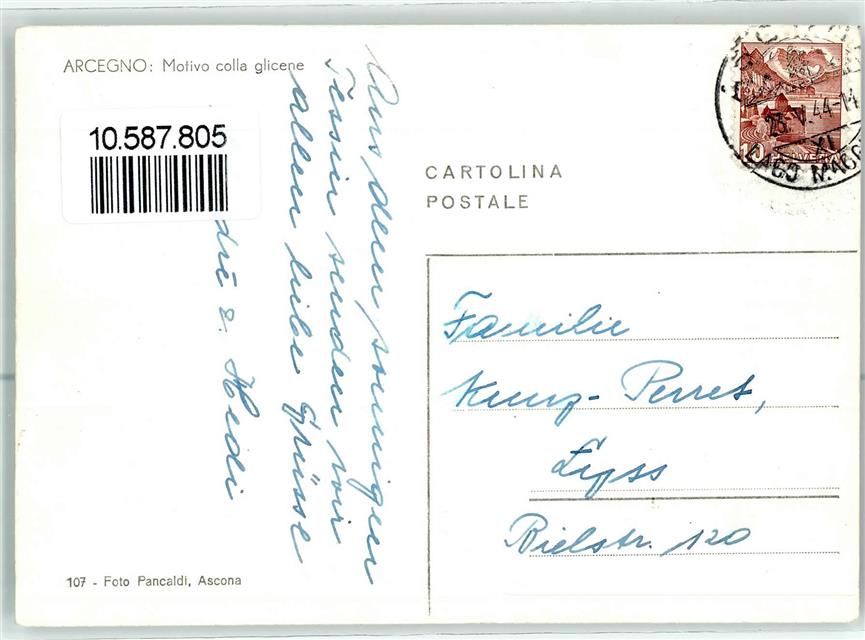 ARCEGNO: Motivo colla glicene
10.587.805
Aus dem sonnigen
Tessin senden wir
allen liebe Grüsse
& Heidi
CARTOLINA
POSTALE
10
LAGO MAGG
Familie
Kunz-Perret,
Lyss
Bielstr. 120
107 - Foto Pancaldi, Ascona